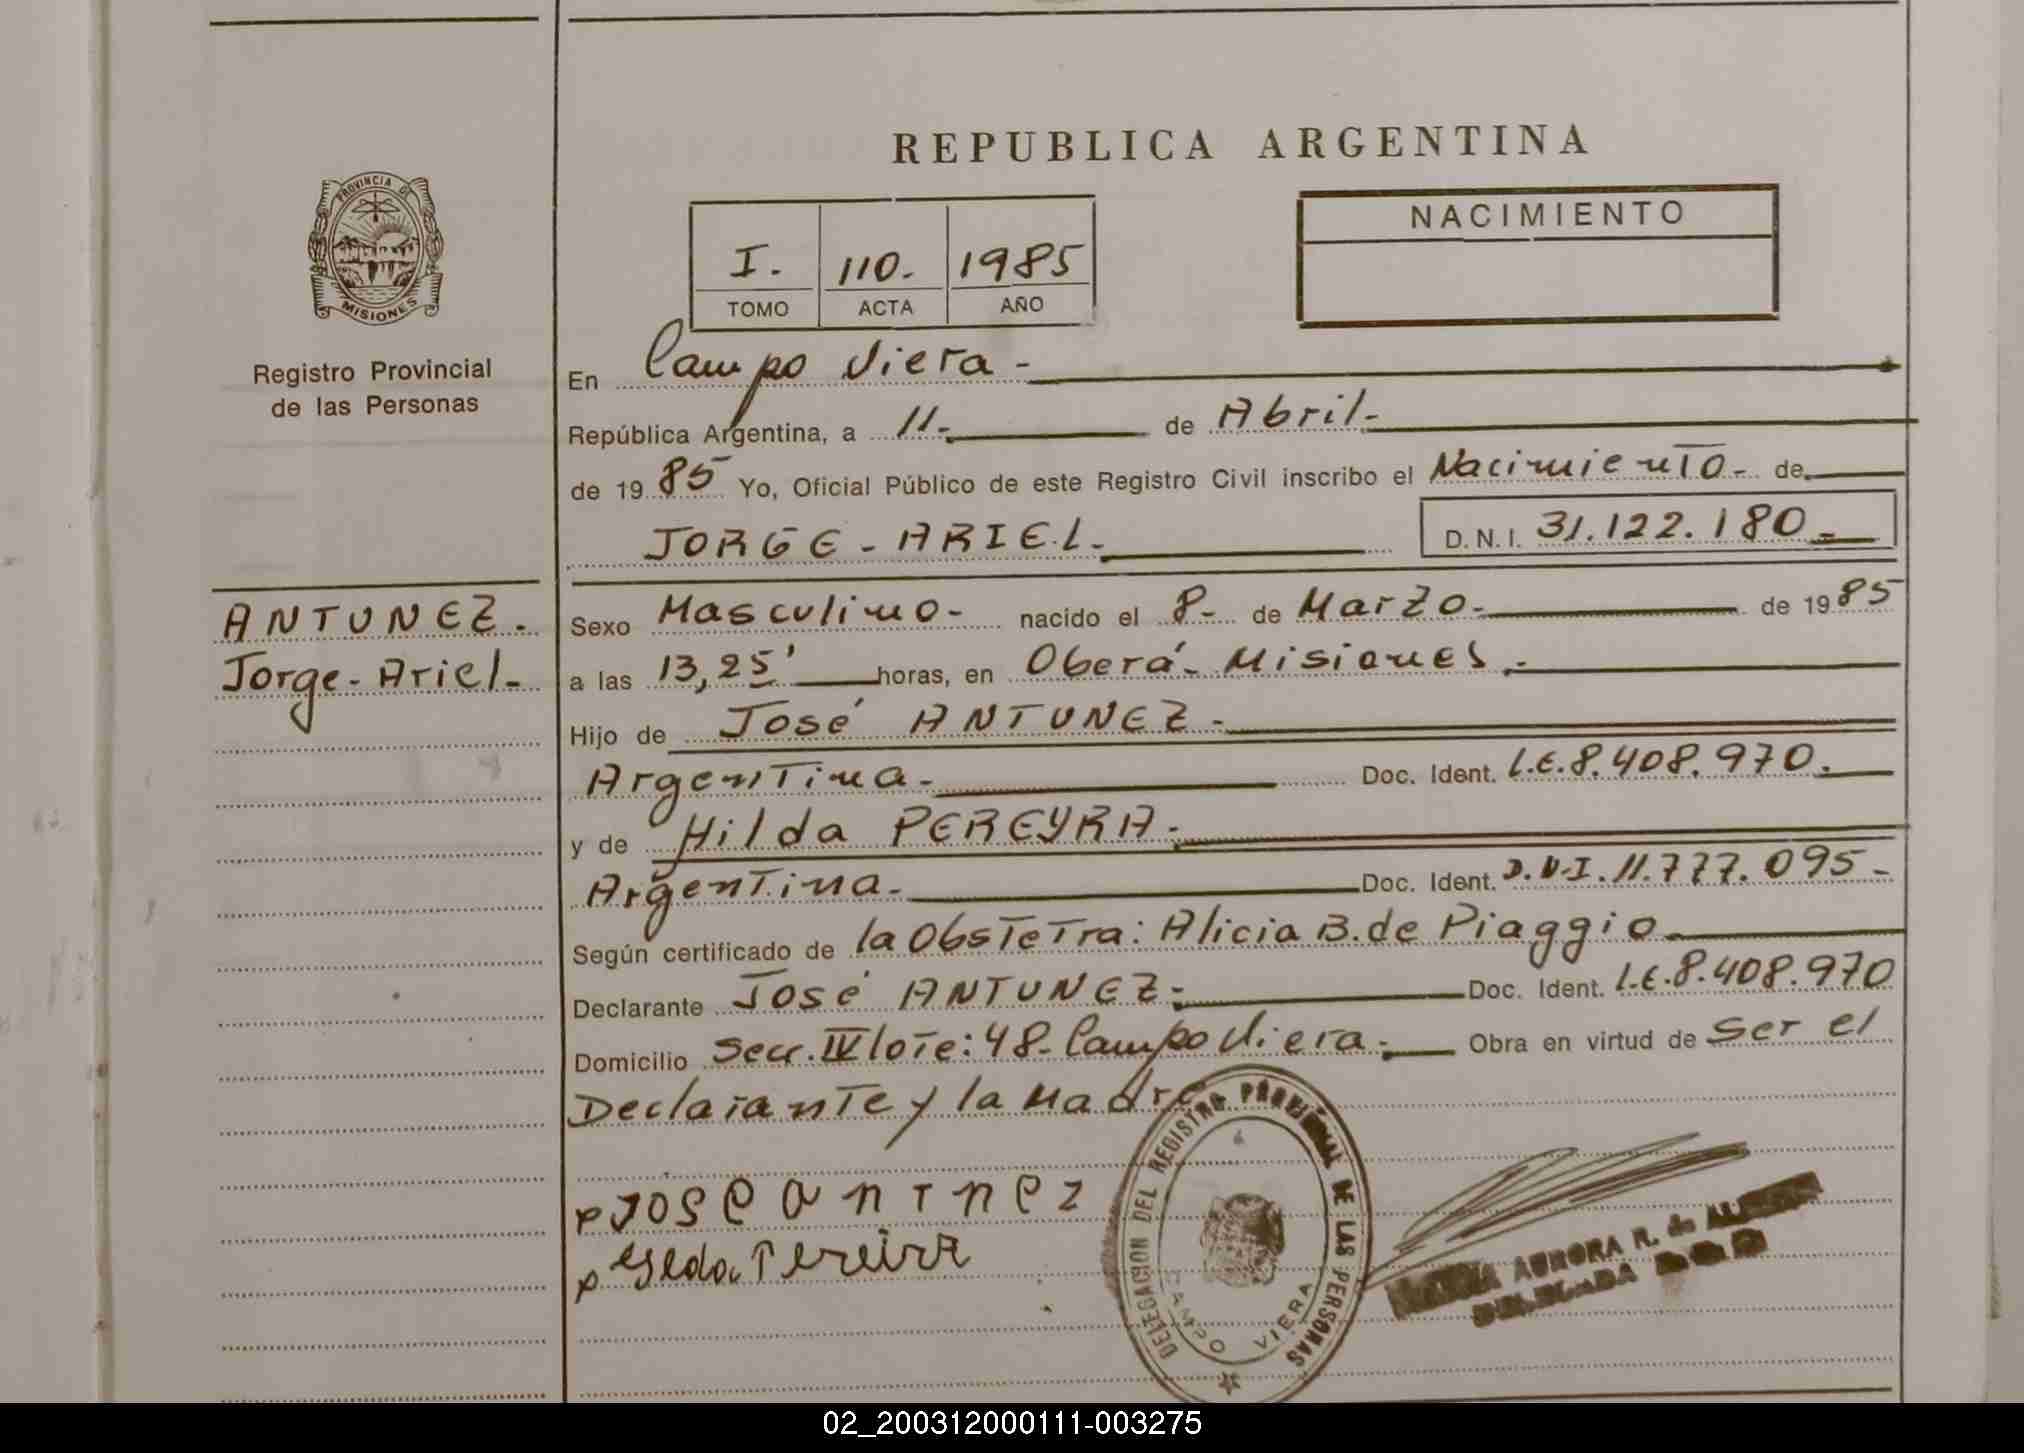 REPUBLICA ARGENTINA
PROVINCIA DE
MISIONES
Registro Provincial
de las Personas
I. 110. 1985
TOMO ACTA AÑO
NACIMIENTO
En Campo Viera -
República Argentina, a 11- de Abril-
de 1985 Yo, Oficial Público de este Registro Civil inscribo el Nacimiento - de
JORGE - ARIEL - D.N.I. 31.122.180 -
ANTUNEZ.
Jorge - Ariel -
Sexo Masculino - nacido el 8 - de Marzo - de 1985
a las 13,25' horas, en Oberá - Misiones . -
Hijo de José ANTUNEZ -
Argentina - Doc. Ident. L.E. 8.408.970.
y de Hilda PEREYRA -
Argentina - Doc. Ident. D.N.I. 11.777.095 -
Según certificado de la Obstetra: Alicia B. de Piaggio -
Declarante José ANTUNEZ - Doc. Ident. L.E. 8.408.970
Domicilio Secc. IV lote: 48 - Campo Viera - Obra en virtud de ser el
Declarante y la Madre
JOSE
Pereira
DELEGACION DEL REGISTRO PROVINCIAL DE LAS PERSONAS
CAMPO VIERA
AURORA R. de
DELEGADA
02_200312000111-003275